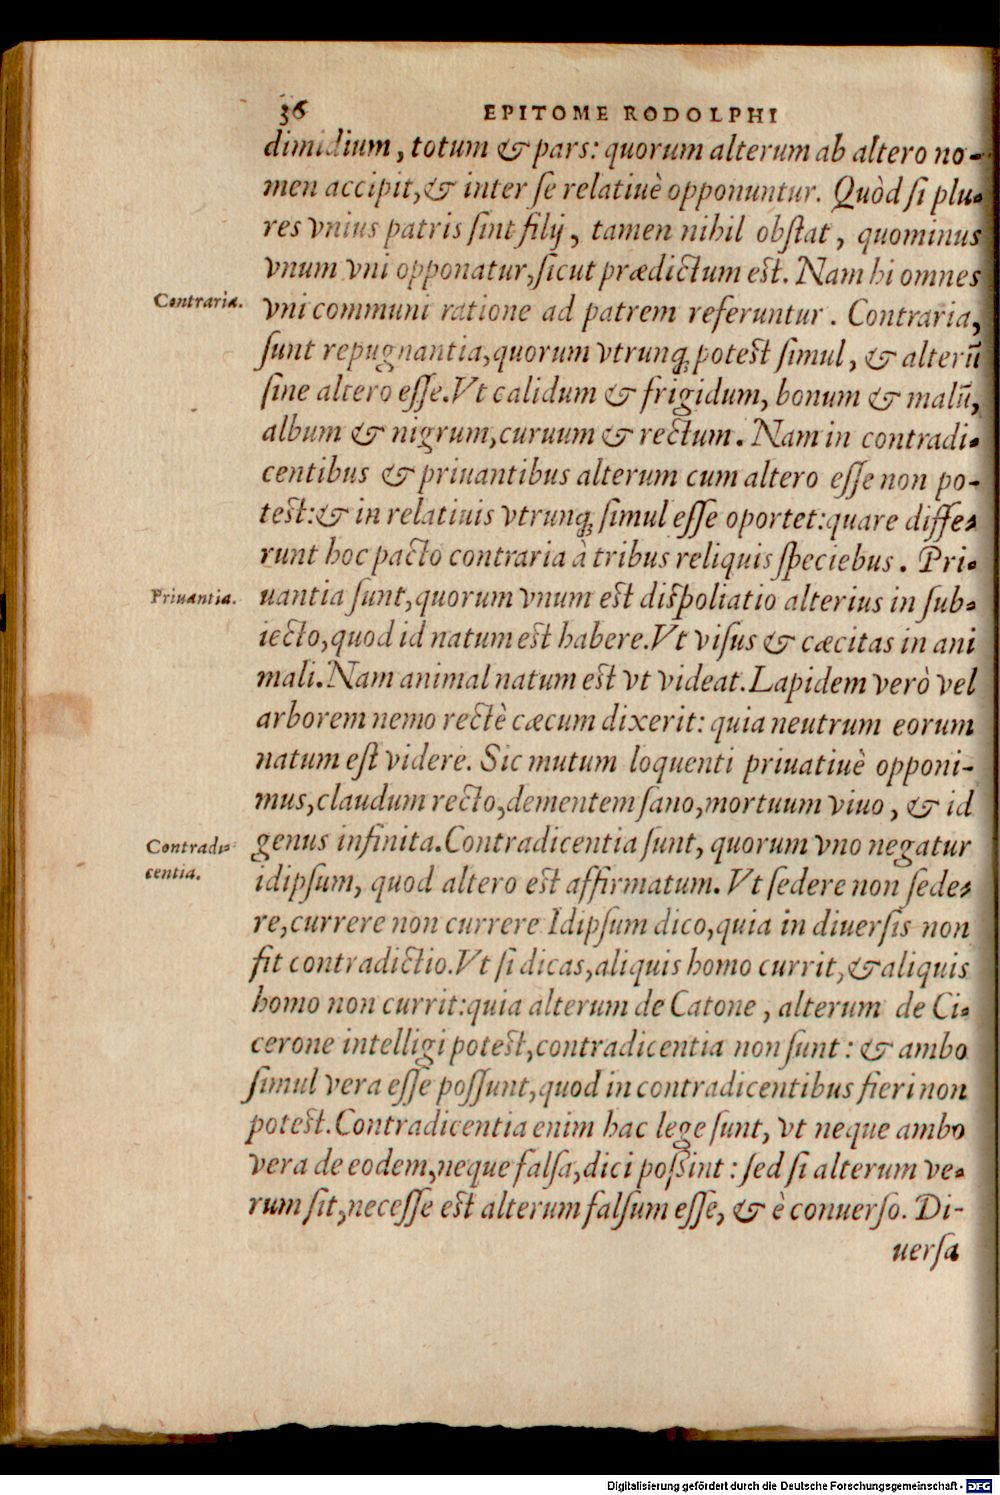 36 EPITOME RODOLPHI
dimidium, totum & pars: quorum alterum ab altero no-
men accipit, & inter ſe relatiuè opponuntur. Quòd ſi plu-
res vnius patris ſint filij, tamen nihil obſtat, quominus
vnum vni opponatur, ſicut prædictum eſt. Nam hi omnes
Contraria. vni communi ratione ad patrem referuntur. Contraria,
ſunt repugnantia, quorum vtrunq; poteſt ſimul, & alterū
ſine altero eſſe. Vt calidum & frigidum, bonum & malū,
album & nigrum, curuum & rectum. Nam in contradi-
centibus & priuantibus alterum cum altero eſſe non po-
teſt: & in relatiuis vtrunq; ſimul eſſe oportet: quare diffe-
runt hoc pacto contraria à tribus reliquis ſpeciebus. Pri-
Priuantia. uantia ſunt, quorum vnum eſt diſpoliatio alterius in ſub-
iecto, quod id natum eſt habere. Vt viſus & cæcitas in ani
mali. Nam animal natum eſt vt videat. Lapidem verò vel
arborem nemo rectè cæcum dixerit: quia neutrum eorum
natum eſt videre. Sic mutum loquenti priuatiuè opponi-
mus, claudum recto, dementem ſano, mortuum viuo, & id
Contradi- genus infinita. Contradicentia ſunt, quorum vno negatur
centia. idipſum, quod altero eſt affirmatum. Vt ſedere non ſede-
re, currere non currere Idipſum dico, quia in diuerſis non
fit contradictio. Vt ſi dicas, aliquis homo currit, & aliquis
homo non currit: quia alterum de Catone, alterum de Ci-
cerone intelligi poteſt, contradicentia non ſunt: & ambo
ſimul vera eſſe poſſunt, quod in contradicentibus fieri non
poteſt. Contradicentia enim hac lege ſunt, vt neque ambo
vera de eodem, neque falſa, dici poſsint: ſed ſi alterum ve-
rum ſit, neceſſe eſt alterum falſum eſſe, & è conuerſo. Di-
uerſa
Digitalisierung gefördert durch die Deutsche Forschungsgemeinschaft - DFG